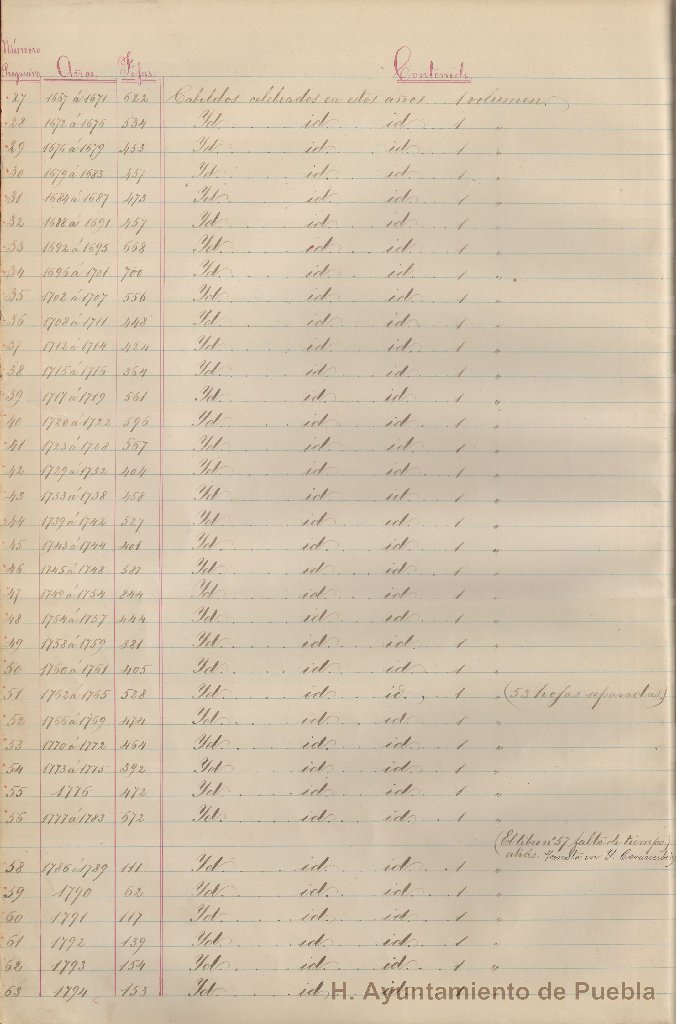 Número
Progresivo. Años. Fojas. Contenido.
27 1667 á 1671 622 Cabildos celebrados en estos años 1 volumen.
28 1672 á 1675 534 Yd. id. id. 1 "
29 1676 á 1679 453 Yd. id. id. 1 "
30 1679 á 1683 457 Yd. id. id. 1 "
31 1684 á 1687 473 Yd. id. id. 1 "
32 1688 á 1691 457 Yd. id. id. 1 "
33 1692 á 1695 668 Yd. id. id. 1 "
34 1696 á 1701 700 Yd. id. id. 1 "
35 1702 á 1707 556 Yd. id. id. 1 "
36 1708 á 1711 448 Yd. id. id. 1 "
37 1712 á 1714 424 Yd. id. id. 1 "
38 1715 á 1716 364 Yd. id. id. 1 "
39 1717 á 1719 561 Yd. id. id. 1 "
40 1720 á 1722 596 Yd. id. id. 1 "
41 1723 á 1728 567 Yd. id. id. 1 "
42 1729 á 1732 404 Yd. id. id. 1 "
43 1733 á 1738 458 Yd. id. id. 1 "
44 1739 á 1742 527 Yd. id. id. 1 "
45 1743 á 1744 401 Yd. id. id. 1 "
46 1745 á 1748 587 Yd. id. id. 1 "
47 1749 á 1754 844 Yd. id. id. 1 "
48 1754 á 1757 444 Yd. id. id. 1 "
49 1758 á 1759 581 Yd. id. id. 1 "
50 1760 á 1761 405 Yd. id. id. 1 "
51 1762 á 1765 528 Yd. id. id. 1 " (53 hojas separadas)
52 1766 á 1769 474 Yd. id. id. 1 "
53 1770 á 1772 464 Yd. id. id. 1 "
54 1773 á 1775 392 Yd. id. id. 1 "
55 1776 472 Yd. id. id. 1 "
56 1777 á 1783 672 Yd. id. id. 1 "
(El libro nº 57 falta de tiempo
atrás.
58 1786 á 1789 111 Yd. id. id. 1 "
59 1790 62 Yd. id. id. 1 "
60 1791 117 Yd. id. id. 1 "
61 1792 139 Yd. id. id. 1 "
62 1793 154 Yd. id. id. 1 "
63 1794 153 Yd. id. id. 1 "
H. Ayuntamiento de Puebla